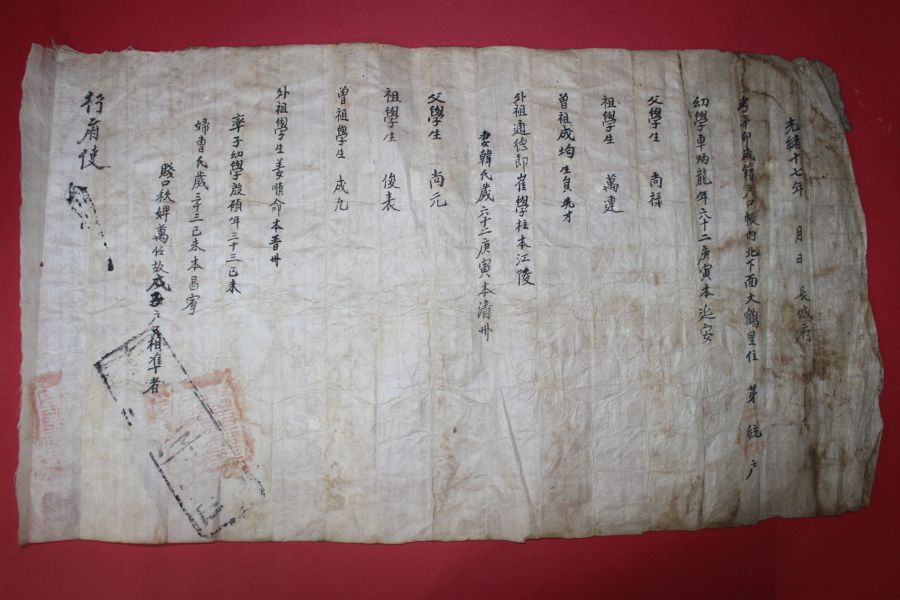 光緖十七年 月 日 長城府
考辛卯成籍戶口帳內北下面大鶴里住 苐 統 戶
幼學車炳龍年六十二庚寅本延安
父學生 尙祿
祖學生 萬運
曾祖成均生員先才
外祖通德郞崔學柱本江陵
妻韓氏歲六十二庚寅本淸州
父學生 尙元
祖學生 俊表
曾祖學生 成允
外祖學生姜順命本晋州
率子幼學殷禎年三十三己未
婦曺氏歲三十三己未本昌寧
賤口秩婢萬任故戊子戶口相準者
行府使